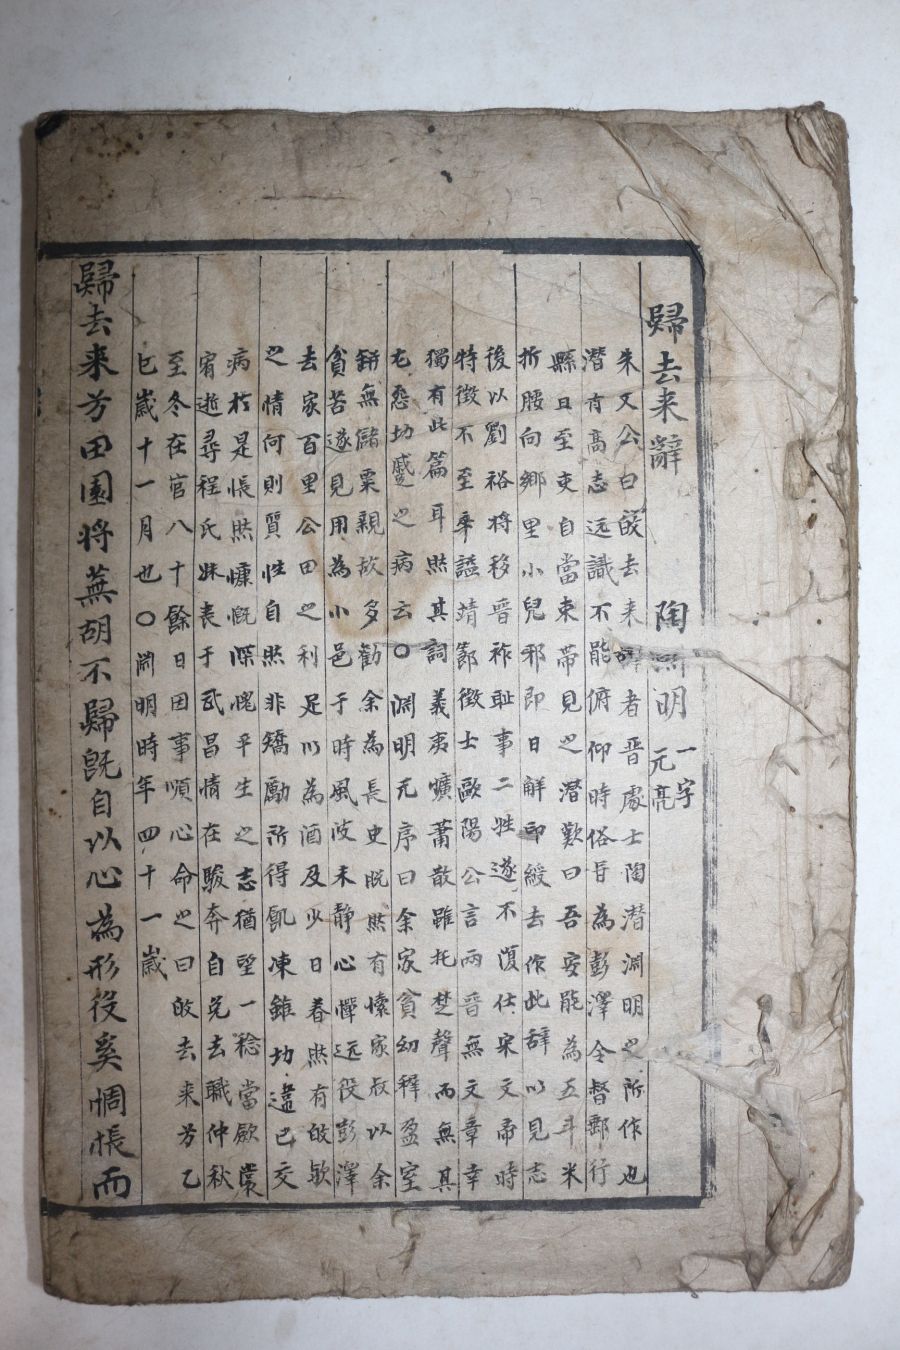 歸去来辭 陶淵明 一字元亮
朱文公曰㱕去来辞者晋處士陶潜淵明之所作也
潜有高志远識不能俯仰時俗甞為彭澤令督郵行
縣且至吏白當束帯見之潜歎曰吾安能為五斗米
折腰向鄉里小兒邪即日解印綬去作此辞以見志
後以劉裕将移晋祚耻事二姓遂不復仕宋文帝時
特徵不至卒諡靖節徵士歐陽公言两晋無文章幸
獨有此篇耳然其詞義夷曠蕭散雖托楚聲而無其
尤怨切蹙之病云〇渊明元序曰余家貧幼稚盈室
缾無儲粟親故多勸余為長史脱然有懐家叔以余
貧苦遂見用為小邑于時風波未静心憚远役彭澤
去家百里公田之利足以為酒及少日眷然有㱕歟
之情何則質性自然非矯勵所得飢凍雖切違已交
病於是悵然慷慨深愧平生之志猶望一稔當歛裳
宵逝尋程氏妹丧于武昌情在駿奔自免去職仲秋
至冬在官八十餘日因事順心命之曰㱕去来兮乙
巳歲十一月也〇渊明時年四十一歲
歸去来兮田園将蕪胡不歸旣自以心為形役奚惆悵而